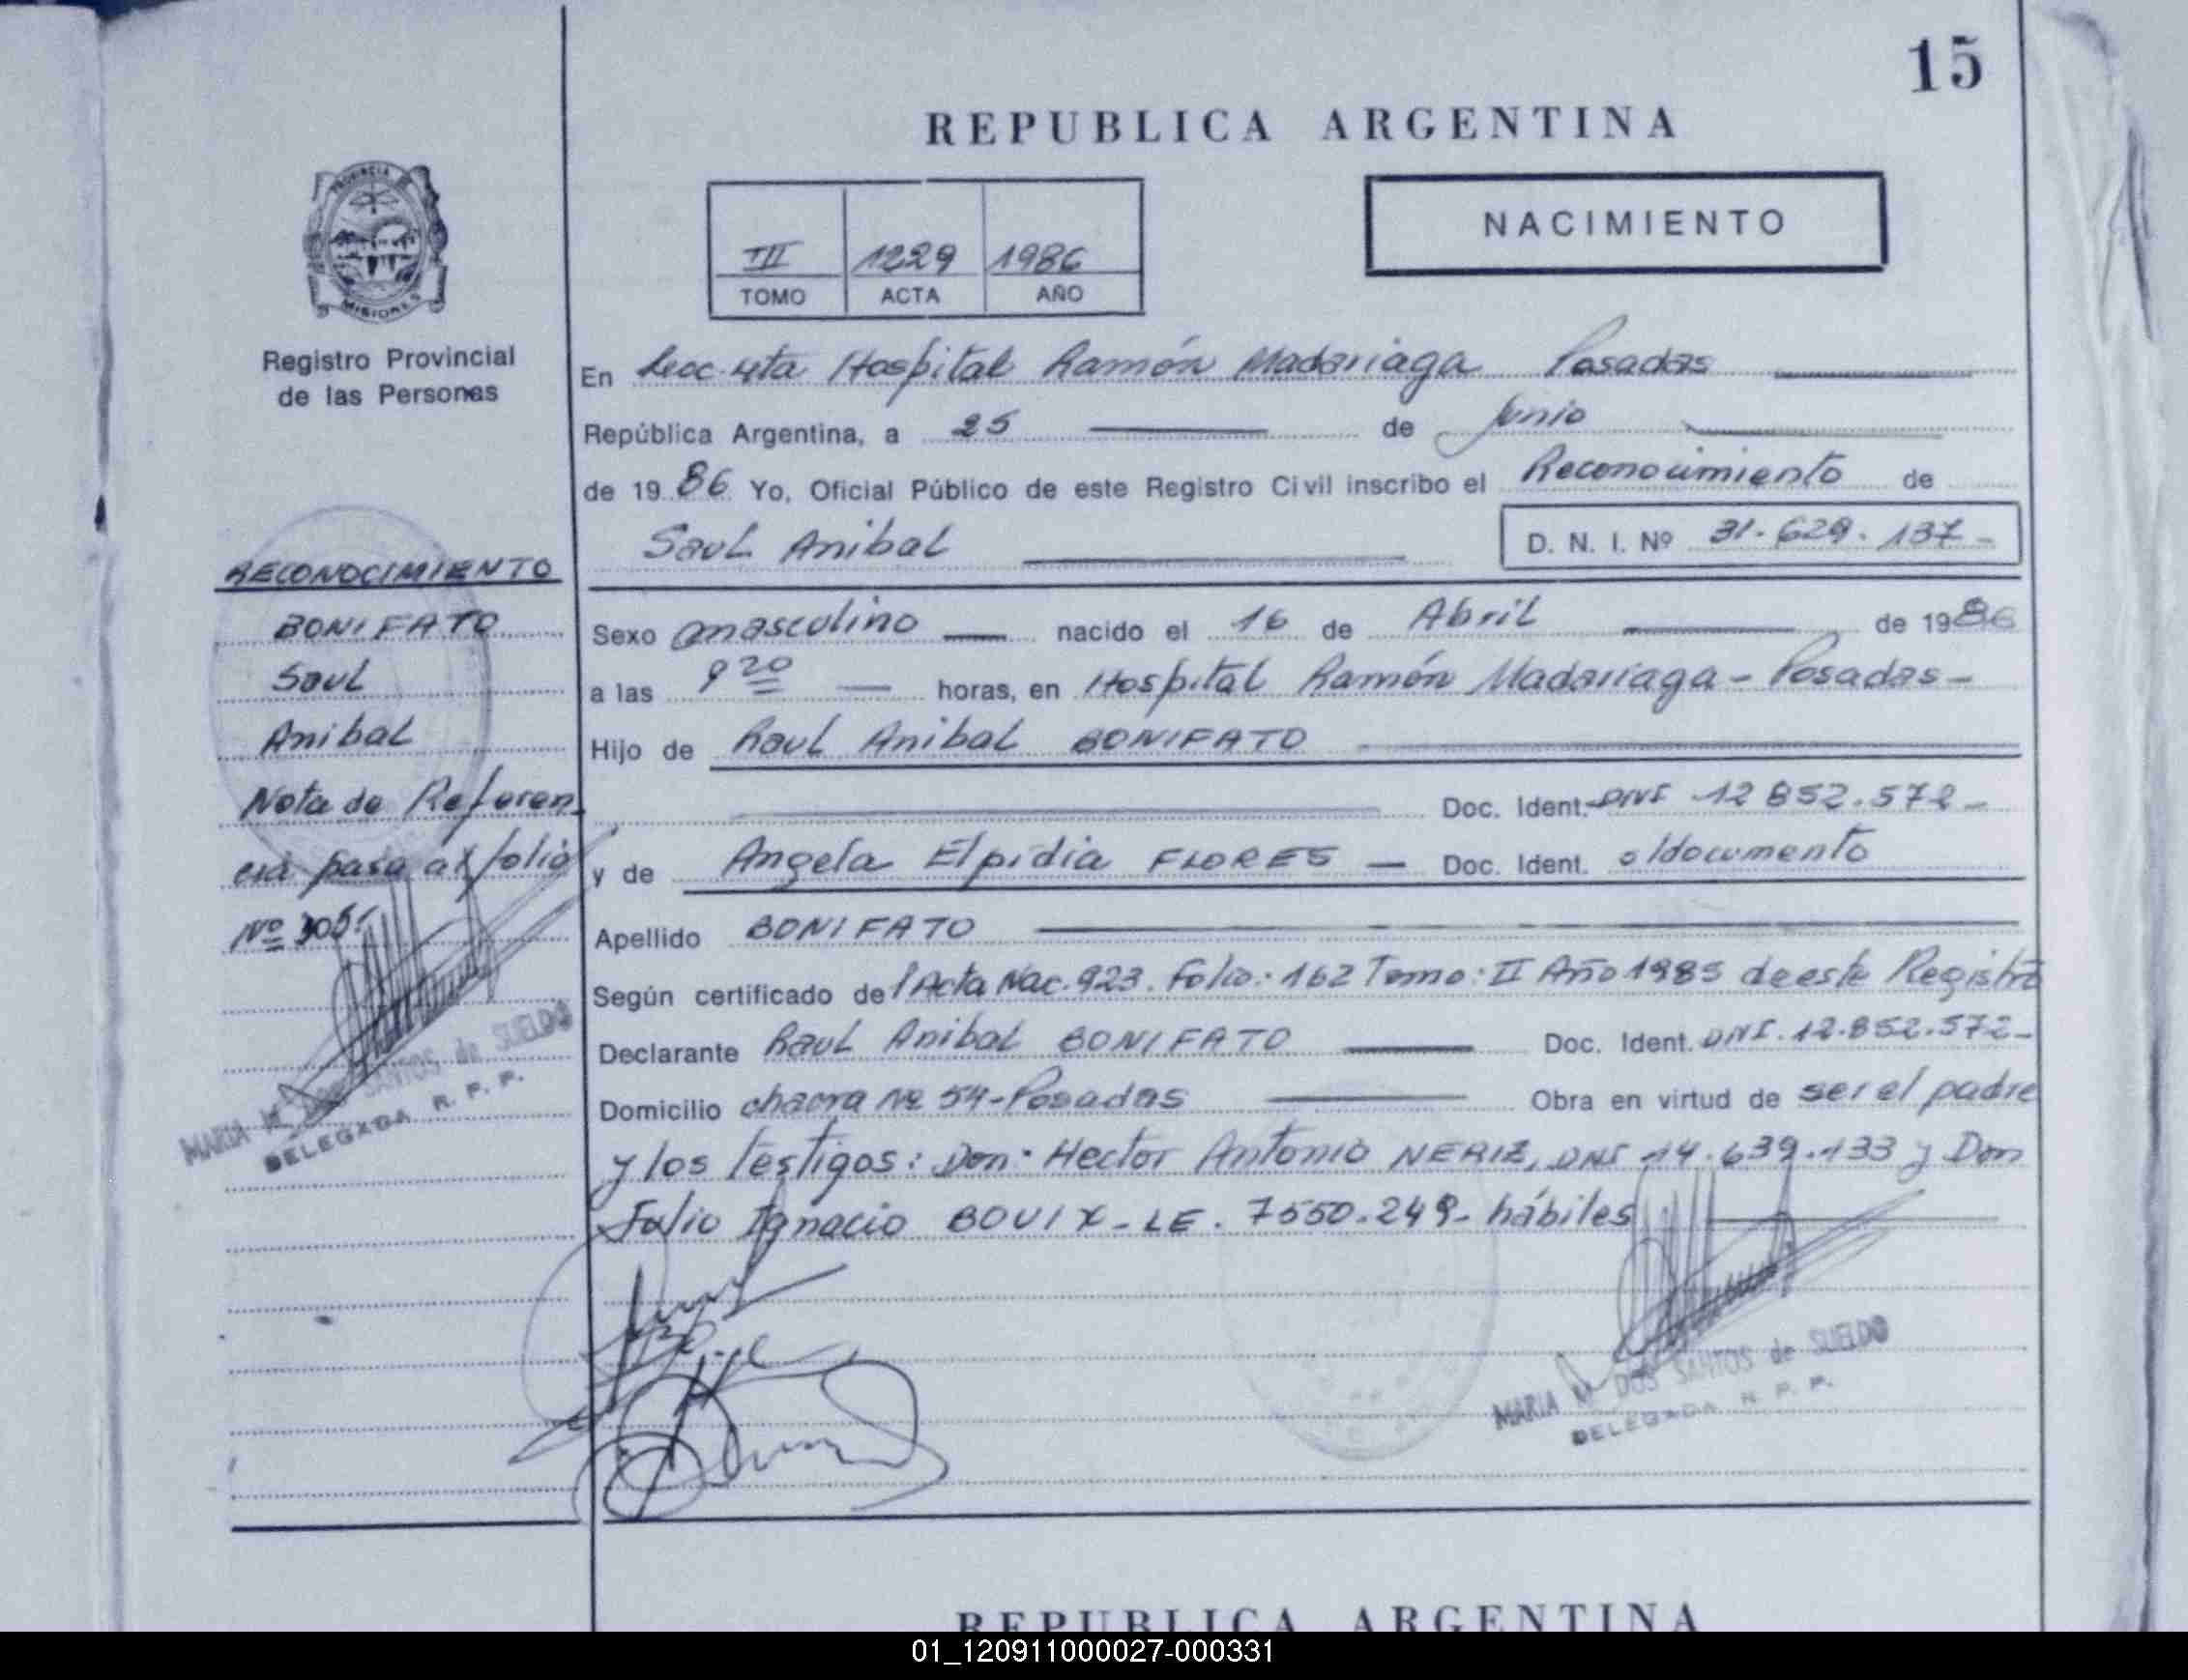 15
REPUBLICA ARGENTINA
NACIMIENTO
III 1229 1986
TOMO ACTA AÑO
PROVINCIA DE
MISIONES
Registro Provincial
de las Personas
En Secc. 4ta Hospital Ramón Madariaga Posadas
República Argentina, a 25 de Junio
de 1986 Yo, Oficial Público de este Registro Civil inscribo el Reconocimiento de
Saul Anibal D. N. I. Nº 31.629.137-
Sexo masculino nacido el 16 de Abril de 1986
a las 9 20 horas, en Hospital Ramón Madariaga - Posadas -
Hijo de Raul Anibal BONIFATO
Doc. Ident. DNI 12 852.572-
y de Angela Elpidia FLORES — Doc. Ident. s/documento
Apellido BONIFATO
Según certificado del Acta Nac. 923. Folio: 162 Tomo: II Año 1985 de este Registro
Declarante Raul Anibal BONIFATO Doc. Ident. DNI. 12.852.572-
Domicilio chacra Nº 54-Posadas Obra en virtud de ser el padre
y los testigos: Don: Hector Antonio NERIZ, DNI 14.639.133 y Don
Ignacio BOUIX - LE. 7550.249- hábiles
MARIA M. DOS SANTOS de SUELDO
DELEGADA R. P. P.
RECONOCIMIENTO
BONIFATO
Saul
Anibal
Nota de Referen
cia pasa al folio
Nº
MARIA M. DOS SANTOS de SUELDO
DELEGADA R. P. P.
REPUBLICA ARGENTINA
01_120911000027-000331